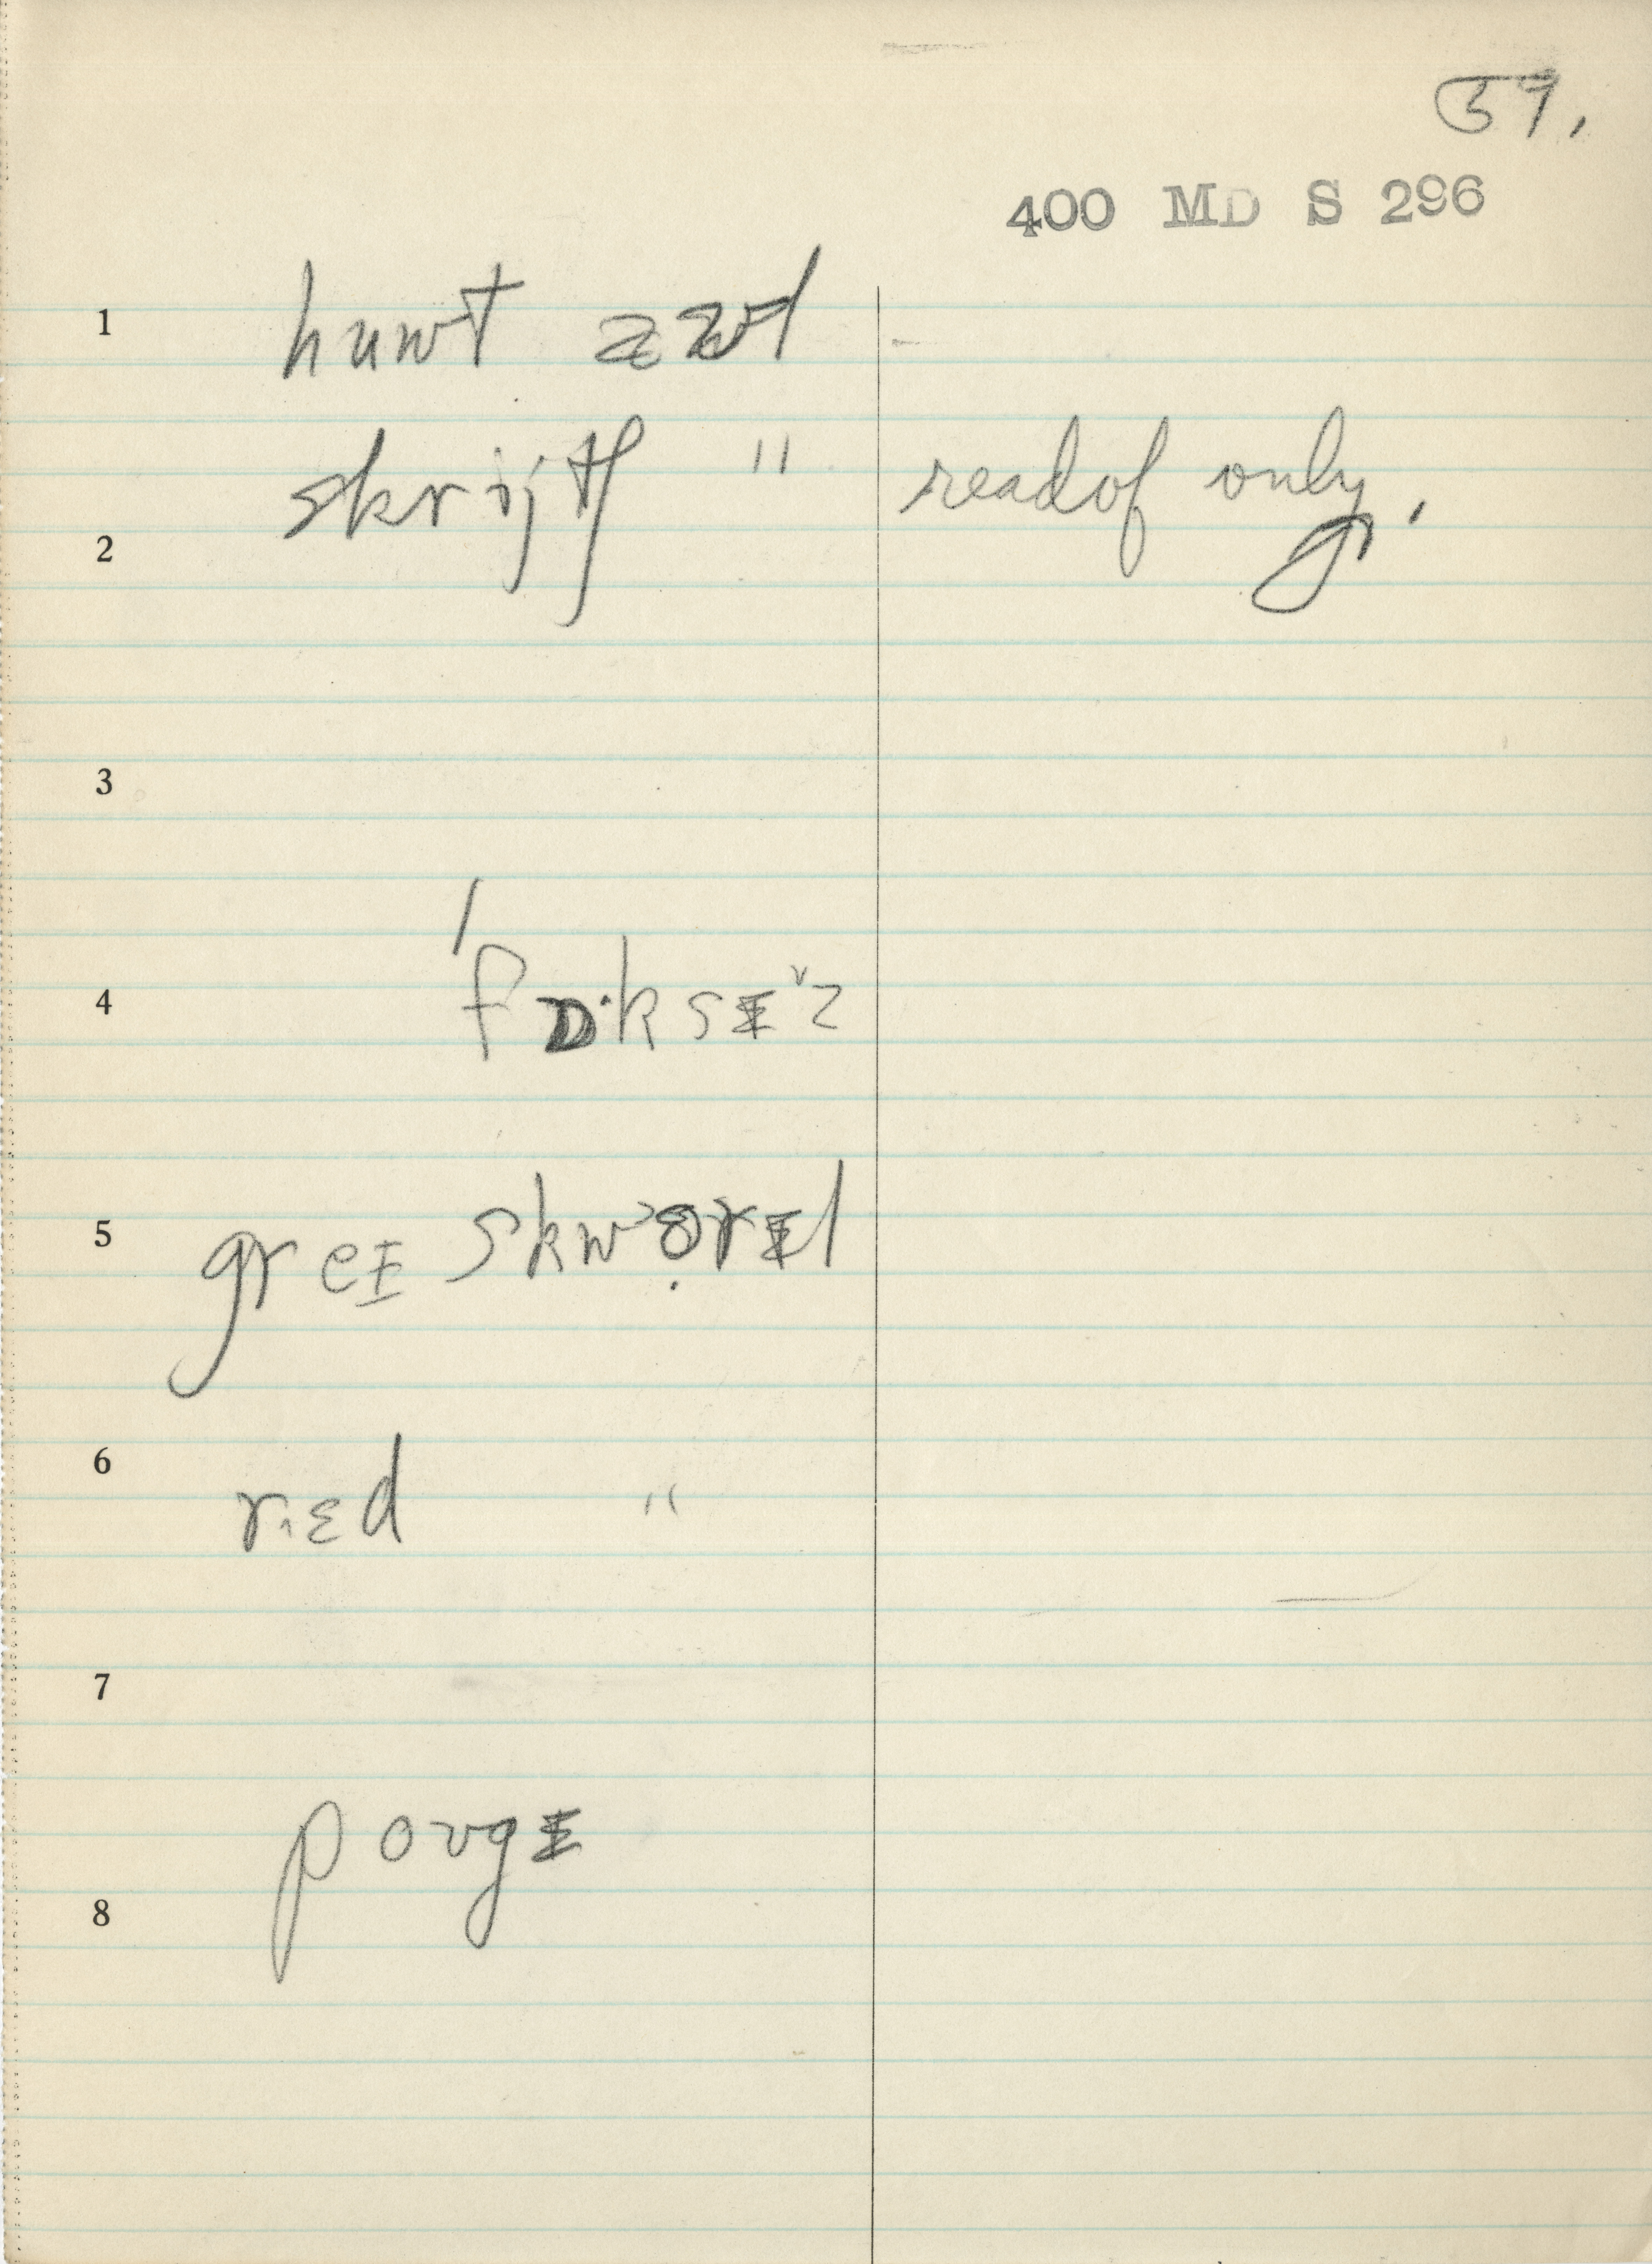 57.
400 MD S 296
1 huwt
2 skrijtʃ " readof only.
3
4 ˈfɒ·ksɪᵛz
5 greɪ skwɜrɪl
6 r.ɛd "
7
8 poʊgɪ